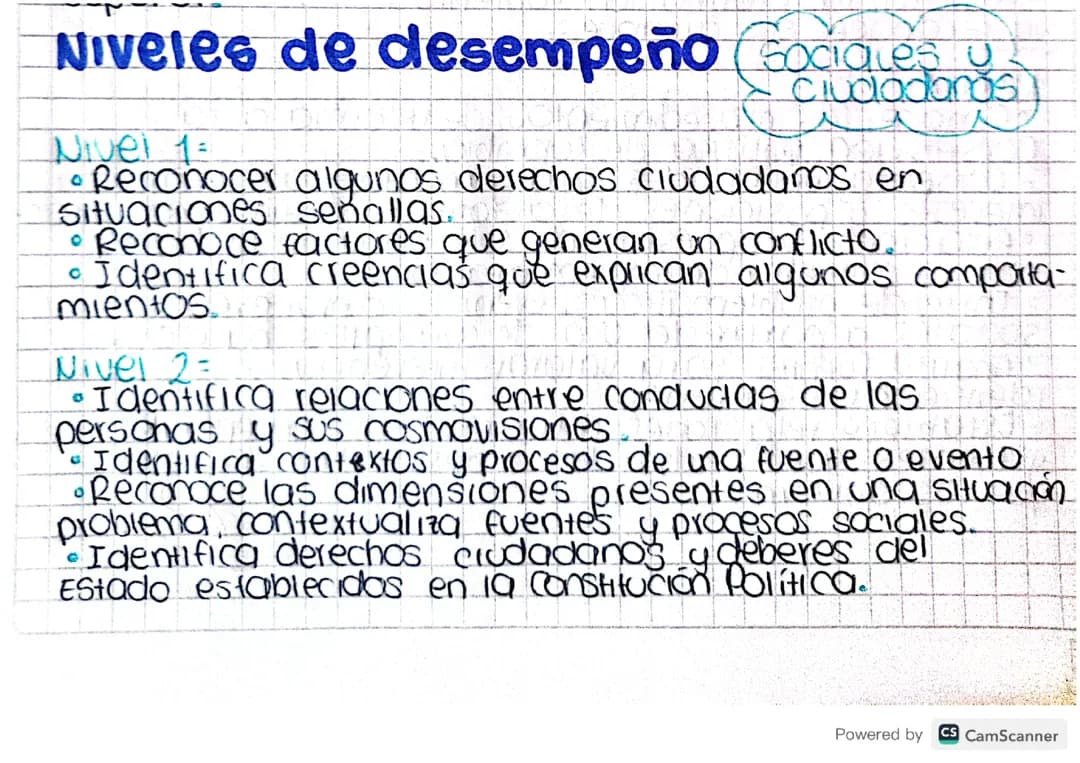 Niveles de desempeño
Sociales y
ciudadanas
Nivel 1:
• Reconocer algunos derechos ciudadanos en
situaciones señallas.
• Reconoce factores que generan un conflicto.
• Identifica creencias que explican algunos comporta-
mientos.
Nivel 2:
• Identifica relaciones entre conductas de las
personas y sus cosmovisiones.
• Identifica contextos y procesos de una fuente o evento.
• Reconoce las dimensiones presentes en una situación
problema, contextualiza fuentes y procesos sociales.
• Identifica derechos ciudadanos y deberes del
Estado establecidos en la Constitución Política.
Powered by CS CamScanner